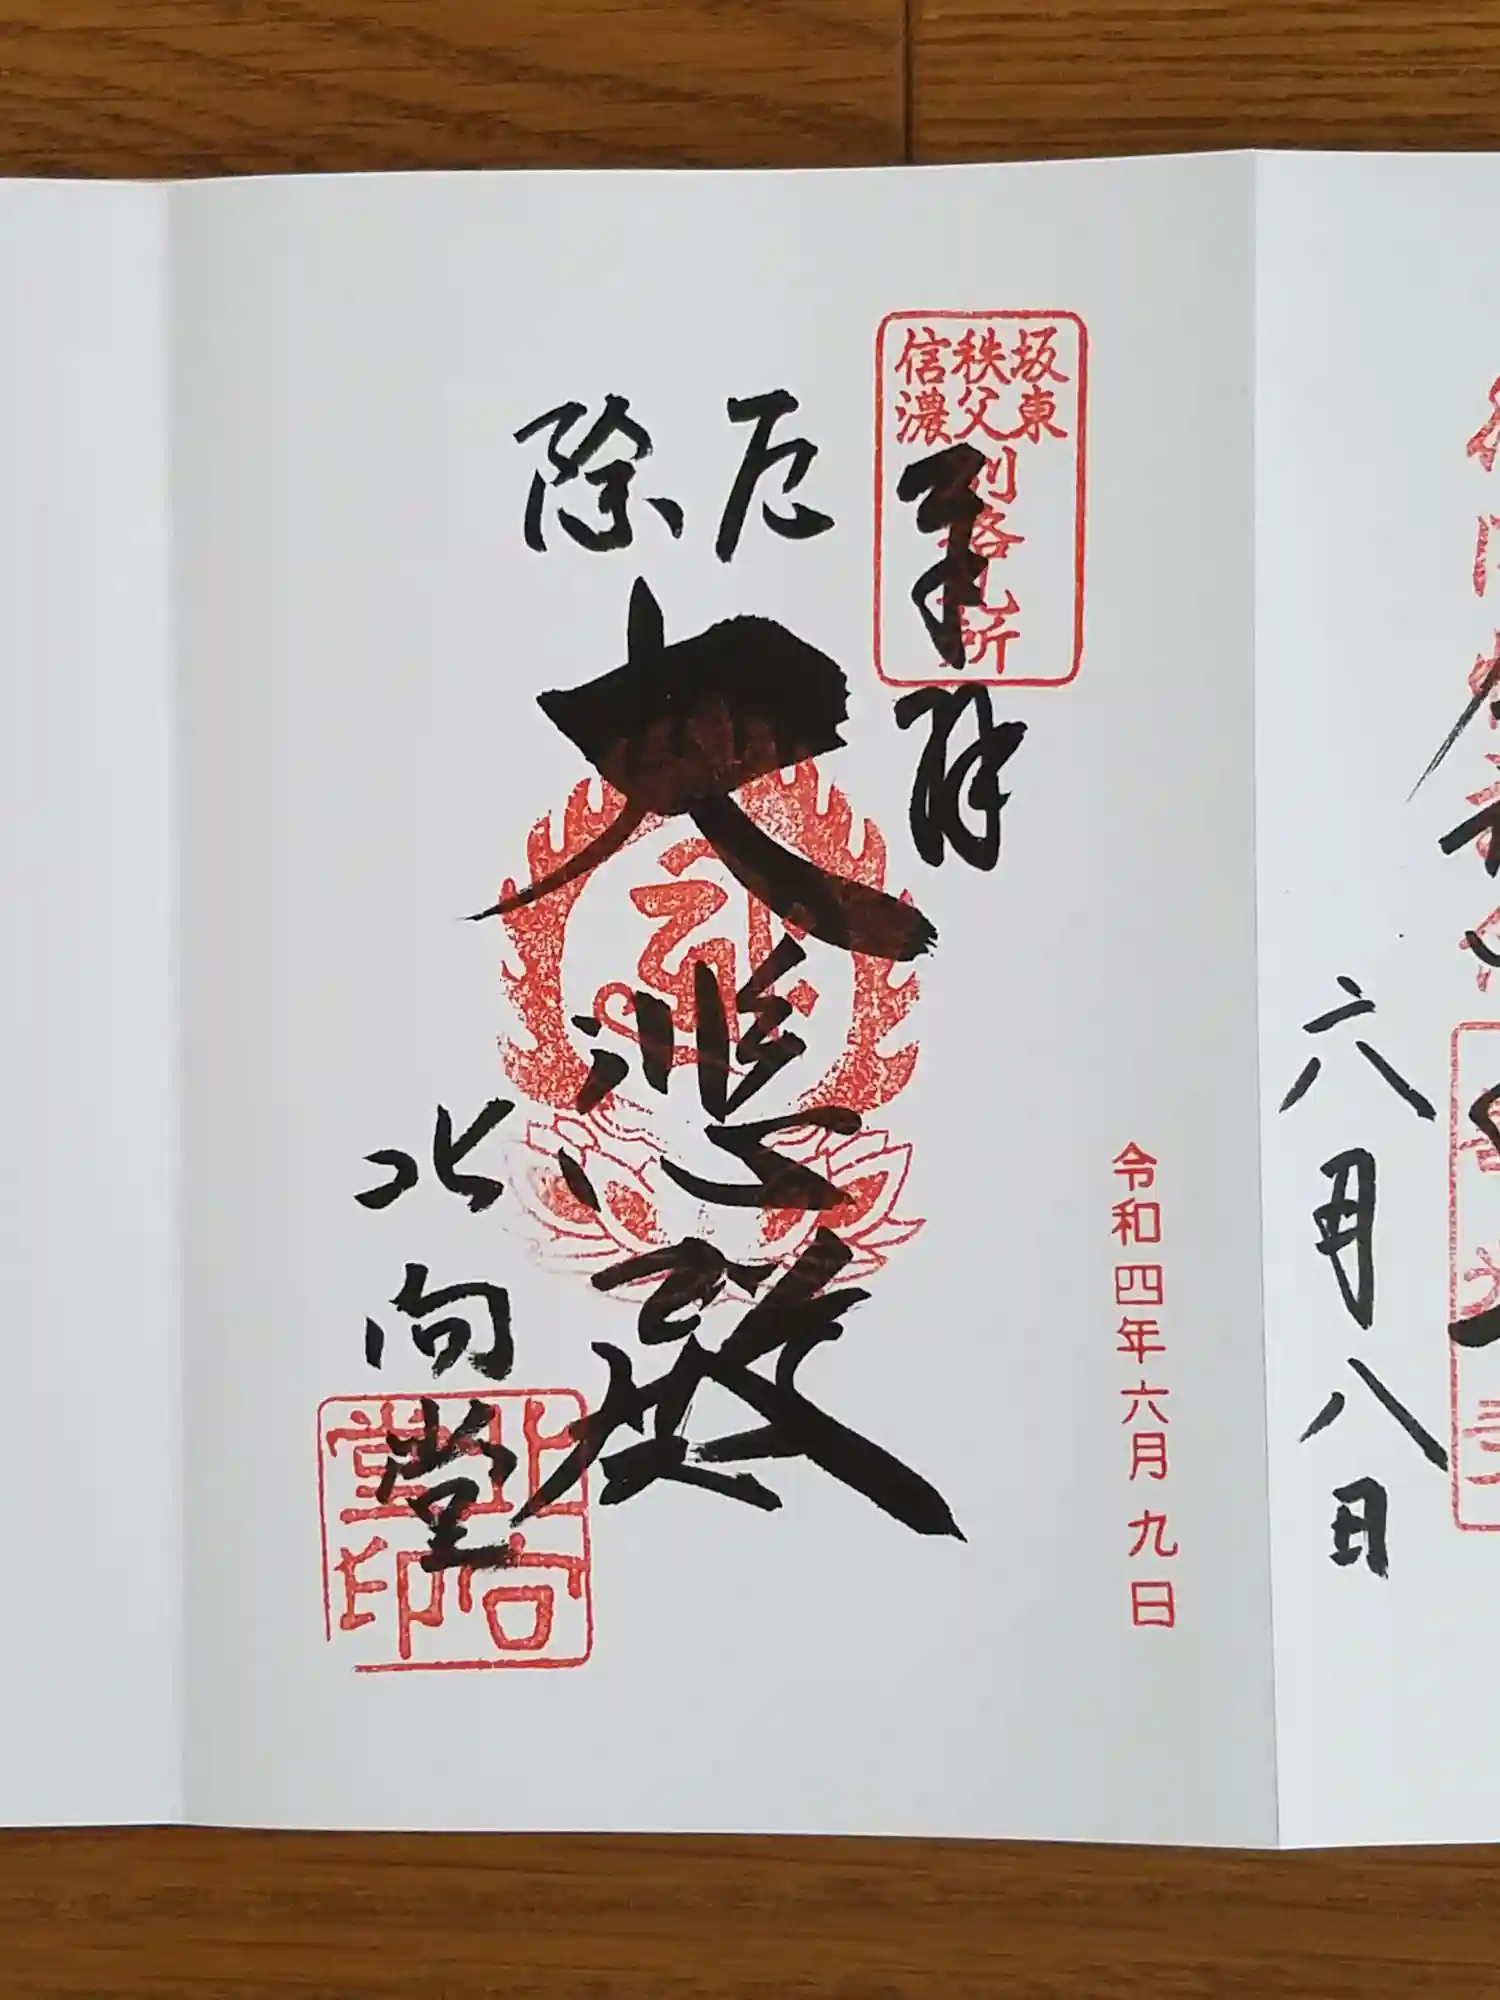 六月八日
坂東
秩父
信濃
別格札所
奉拝
令和四年六月九日
厄除
大悲殿
北向堂
北向堂印